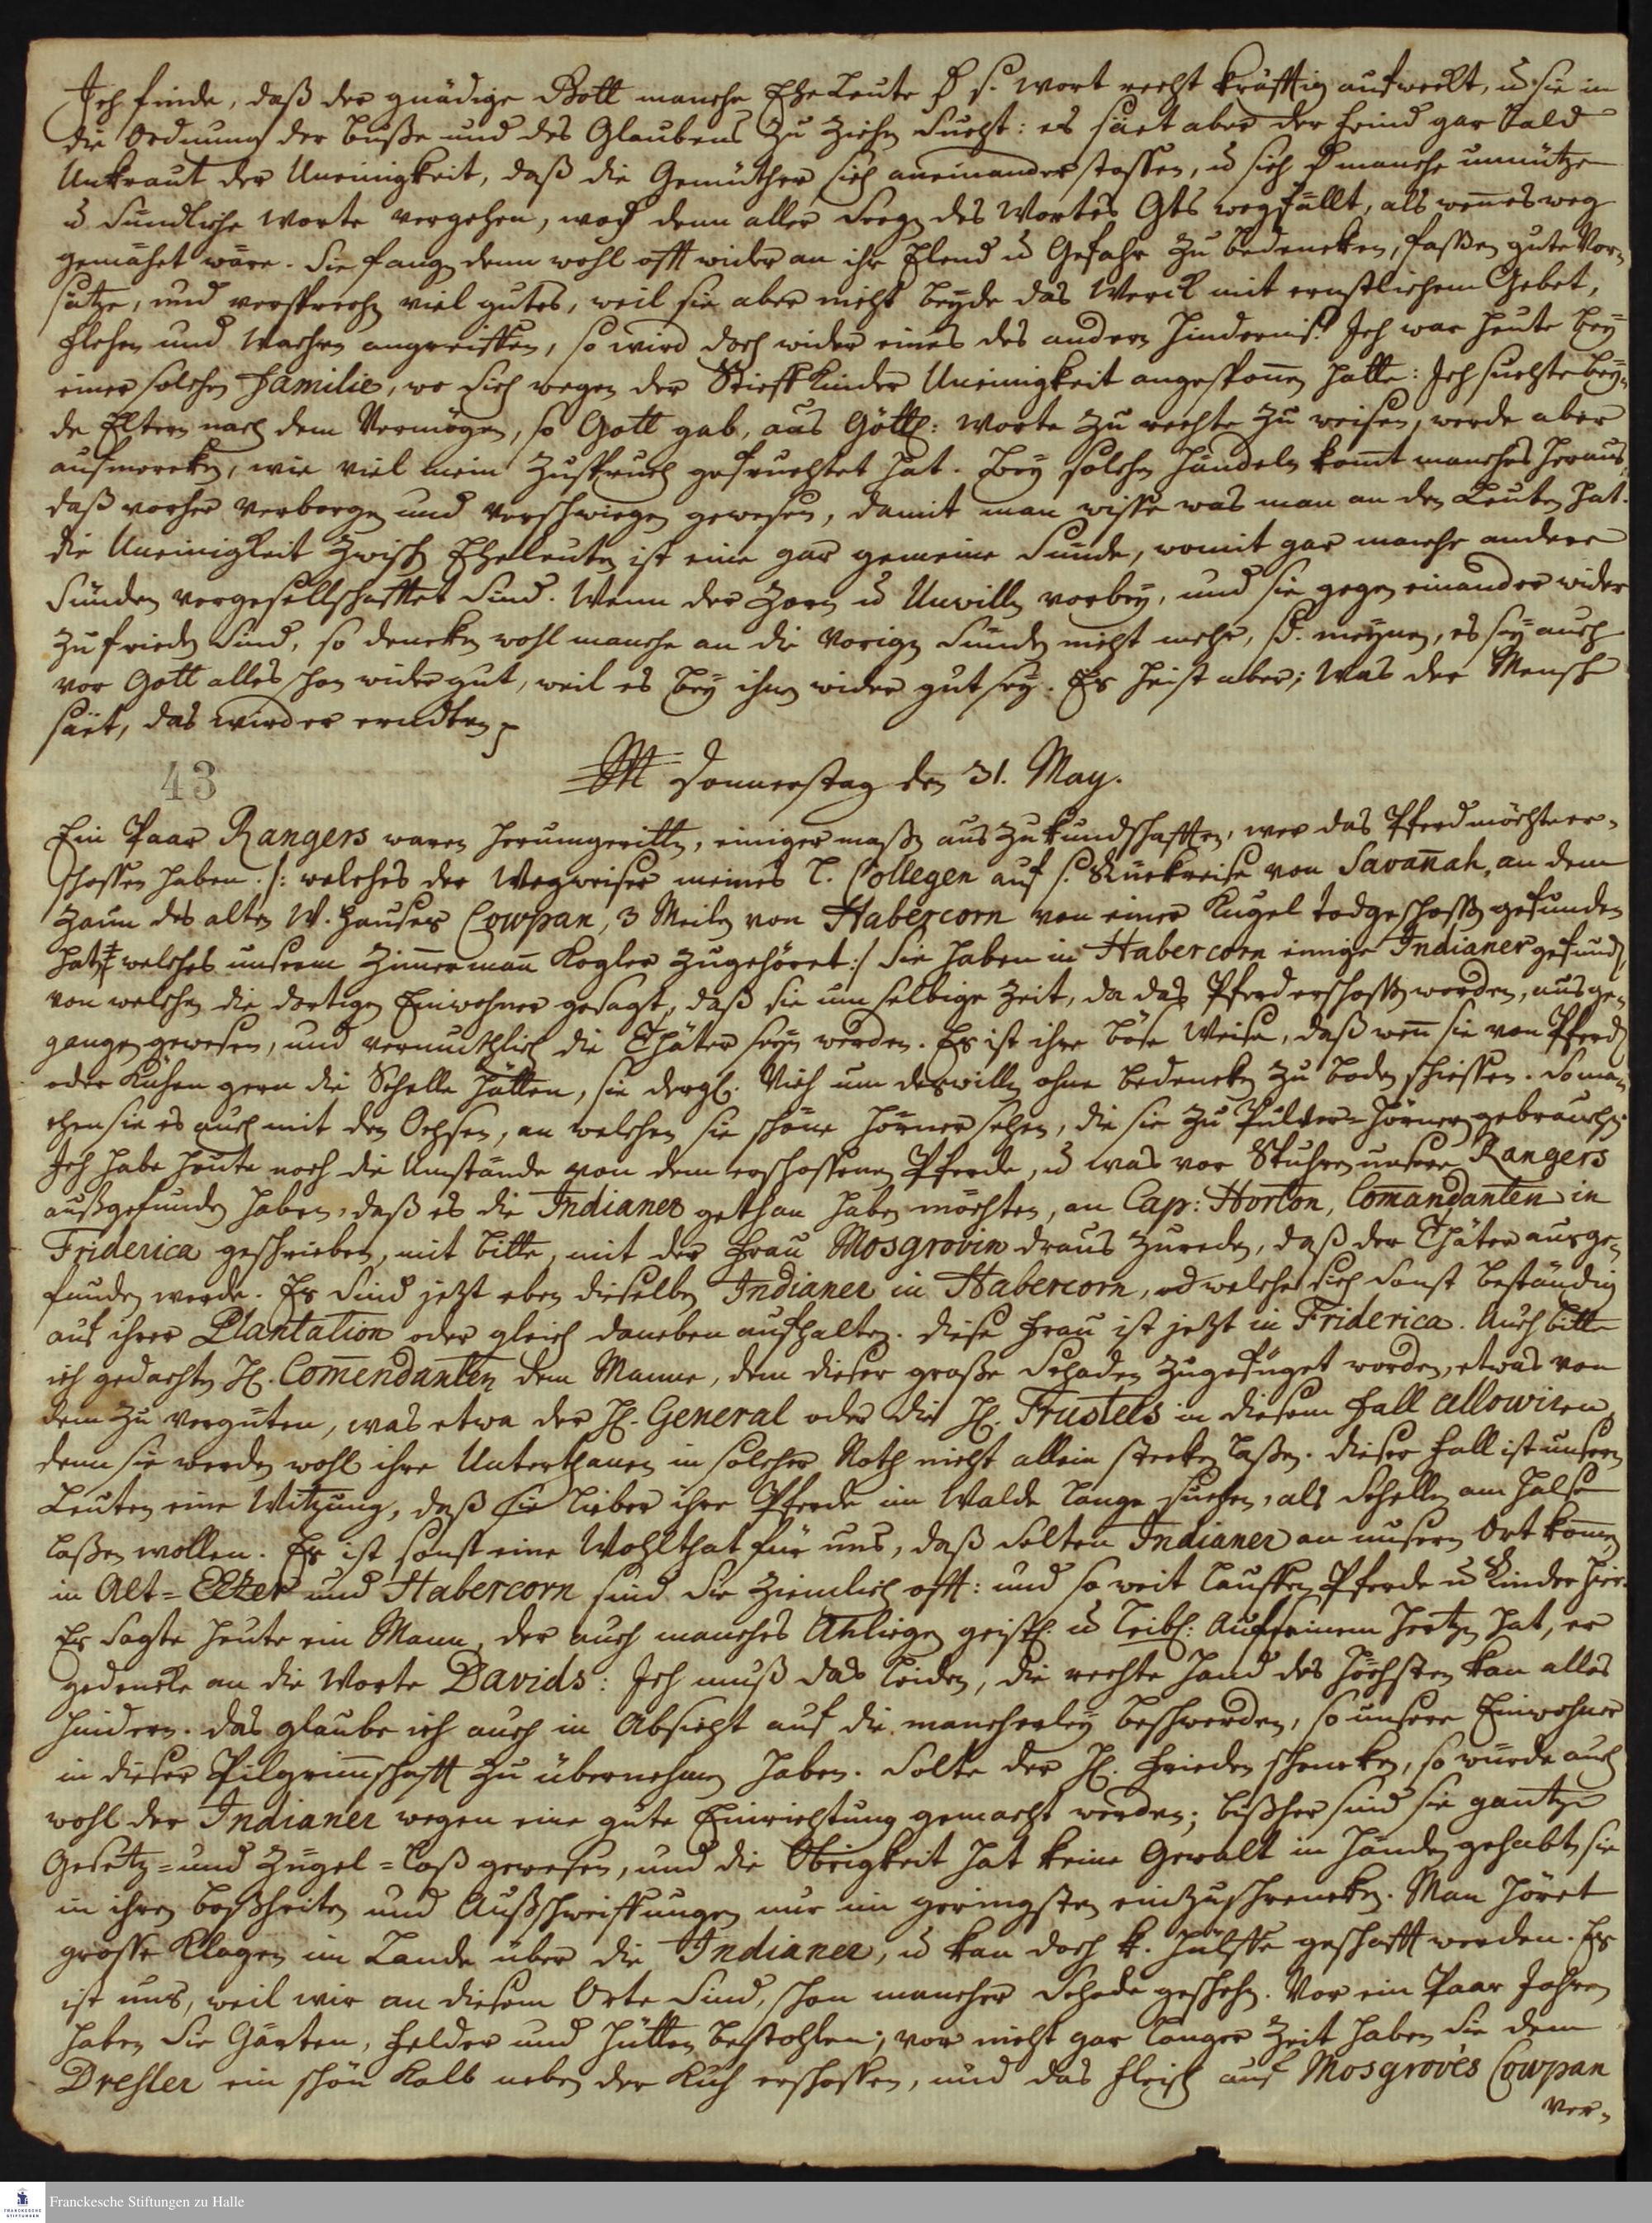 Ich finde, daß der gnädige Gott manche Ehe Leute d. s. Wort recht kräfftig aufweckt, u. sie in
die Ordnung der Buße und des Glaubens zu ziehen sucht: es säet aber der Feind gar bald
Unkraut der Uneinigkeit, daß die Gemüther sich aneinander stossen, u. sich d. manche unnütze
u. sündliche Worte vergehen, wodch denn aller Seegen des Wortes Gts wegfällt, als wenn es weg
gemähet wäre. Sie fangen denn wohl offt wider an ihr Elend u. Gefahr zu bedencken, fassen gute Vor-
sätze, und versprechen viel gutes, weil sie aber nicht beyde das Werck mit ernstlichem Gebet,
Flehen und Wachen angreiffen, so wird doch wider eines des andern Hinderniß. Ich war heute bey
einer solchen Familie, wo sich wegen der Stieff Kinder Uneinigkeit angesponnen hatte: Ich suchte bey-
de Eltern nach dem Vermögen, so Gott gab, aus Göttl: Worte zu rechte zu weisen, werde aber
aufmercken, wie viel mein Zuspruch gefruchtet hat. Bey solchen Händeln komt manches heraus,
daß vorher verborgen und verschwiegen gewesen, damit man wisse was man an den Leuten hat.
Die Uneinigkeit zwischen Eheleuten ist eine gar gemeine Sünde, womit gar manche andere
Sünden vergesellschafftet sind. Wenn der Zorn u. Unwillen vorbey, und sie gegen einander wider
zufrieden sind, so dencken wohl manche an die vorigen Sünden nicht mehr, sd. meynen, es sey auch
vor Gott alles schon wider gut, weil es bey ihnen wider gut sey. Es heist aber; Was der Mensch
säet, das wird er erndten p
43
Donnerstag den 31. May.
Ein Paar Rangers waren herumgeritten, einiger maßen auszukundschafften, wer das Pferd möchte er-
schossen haben. /: welches der Wegweiser meines l. Collegen auf s. Rückreise von Savañah, an dem
Zaun des alten W. Hauses Cowpan, 3 Meilen von Habercorn von einer Kugel todgeschossen gefunden
hat, welches unserm Zimermañ Kogler zugehöret:/ Sie haben in Habercorn einige Indianer gefunden,
von welchen die dortigen Einwohner gesagt, daß sie um selbige Zeit, da das Pferd erschossen worden, ausge-
gangen gewesen, und vermuthlich die Thäter seyn werden. Es ist ihre böse Weise, daß wen sie von Pferden
oder Kühen gern die Schelle hätten, sie dergl. Vieh um deswillen ohne Bedencken zu Boden schiessen. So ma-
chen sie es auch mit den Ochsen, an welchen sie schöne Hörner sehen, die sie zu Pulver-Hörner gebrauchen.
Ich habe heute noch die Umstände von dem erschossenen Pferde, u. was vor Spuhren unsere Rangers
außgefunden haben, daß es die Indianer gethan haben möchten, an Cap: Horton, Comandanten in
Friderica geschrieben, mit Bitte, mit der Frau Mosgrovin draus zureden, daß der Thäter ausge-
funden werde. Es sind jetzt eben dieselben Indianer in Habercorn, welche sich sonst beständig
auf ihrer Plantation oder gleich daneben aufhalten. Diese Frau ist jetzt in Friderica. Auch bitte
ich gedachten H. Comendanten dem Manne, dem dieser große Schaden zugefüget worden, etwas von
dem zu vergüten, was etwa der H. General oder die H. Trustees in diesem Fall allowiren,
denn sie werden wohl ihre Unterthanen in solcher Noth nicht allein stecken laßen. Dieser Fall ist unsern
Leuten eine Witzung, daß sie lieber ihre Pferde im Walde lange suchen, als Schellen am Halse
laßen wollen. Es ist sonst eine Wohlthat für uns, daß selten Indianer an unsern Ort komen,
in Alt-Ebzer und Habercorn sind sie ziemlich offt: und so weit lauffen Pferde u. Rinder hin.
Es sagte heute ein Mann, der auch manches Anliegen geistl. u. leibl: auf seinem Hertzen hat, er
gedencke an die Worte Davids: Ich muß das leiden, die rechte Hand des Höchsten kan alles
hindern. Das glaube ich auch in Absicht auf die mancherley Beschwerden, so unsere Einwohner
in dieser Pilgrimschafft zu übernehmen haben. Solte der H. Frieden schencken, so würde auch
wohl der Indianer wegen eine gute Einrichtung gemacht werden; bißher sind sie gantz
Gesetz- und Zügel-loß gewesen, und die Obrigkeit hat keine Gewalt in Händen gehabt, sie
in ihren Boßheiten und Außschweiffungen nur im geringsten einzuschrencken. Man höret
grosse Klagen im Lande über die Indianer, u. kan doch k. Hülffe geschafft werden. Es
ist uns, weil wir an diesem Orte sind, schon mancher Schade geschehen. Vor ein Paar Jahren
haben sie Gärten, Felder und Hütten bestohlen; vor nicht gar langer Zeit haben sie dem
Dresler ein schön Kalb neben der Kuh erschossen, und das Fleisch auf Mosgroves Cowpan
ver-
Franckesche Stiftungen zu Halle
FRANCKESCHE
STIFTUNGEN